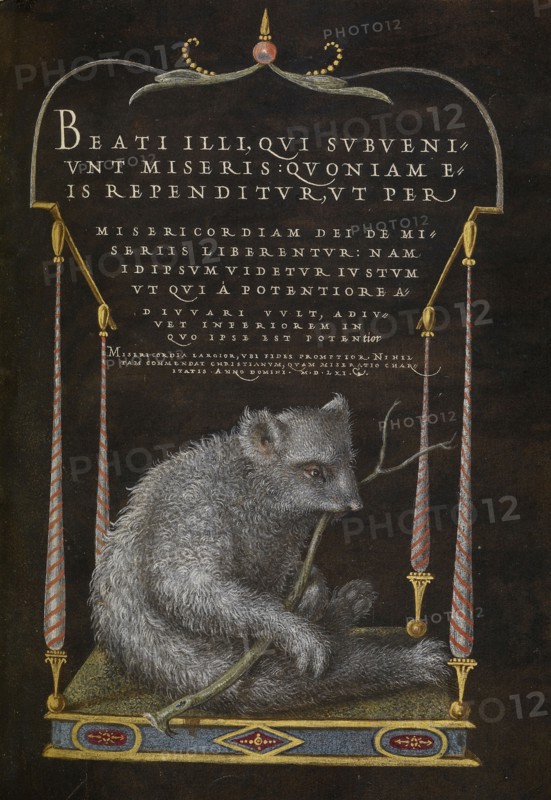 BEATI ILLI, QVI SVBVENI⸗
VNT MISERIS: QVONIAM E⸗
IS REPENDITVR, VT PER
MISERICORDIAM DEI DE MI⸗
SERIIS LIBERENTVR: NAM
IDIPSVM VIDETVR IVSTVM
VT QVI À POTENTIORE A⸗
DIVVARI VVLT, ADIV⸗
VET INFERIOREM IN
QVO IPSE EST POTENtior
MISERICORDIA LARGIOR, VBI FIDES PROMPTIOR. NIHIL
TAM COMMENDAT CHRISTIANVM, QVAM MISERATIO CHARI
TATIS. ANNO DOMINI. M.D.LXI.
PHOTO12